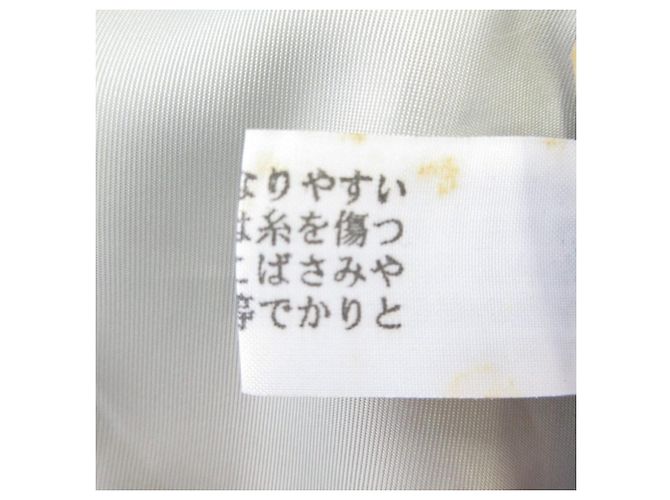 なりやすい
は糸を傷つ
こばさみや
等でかりと